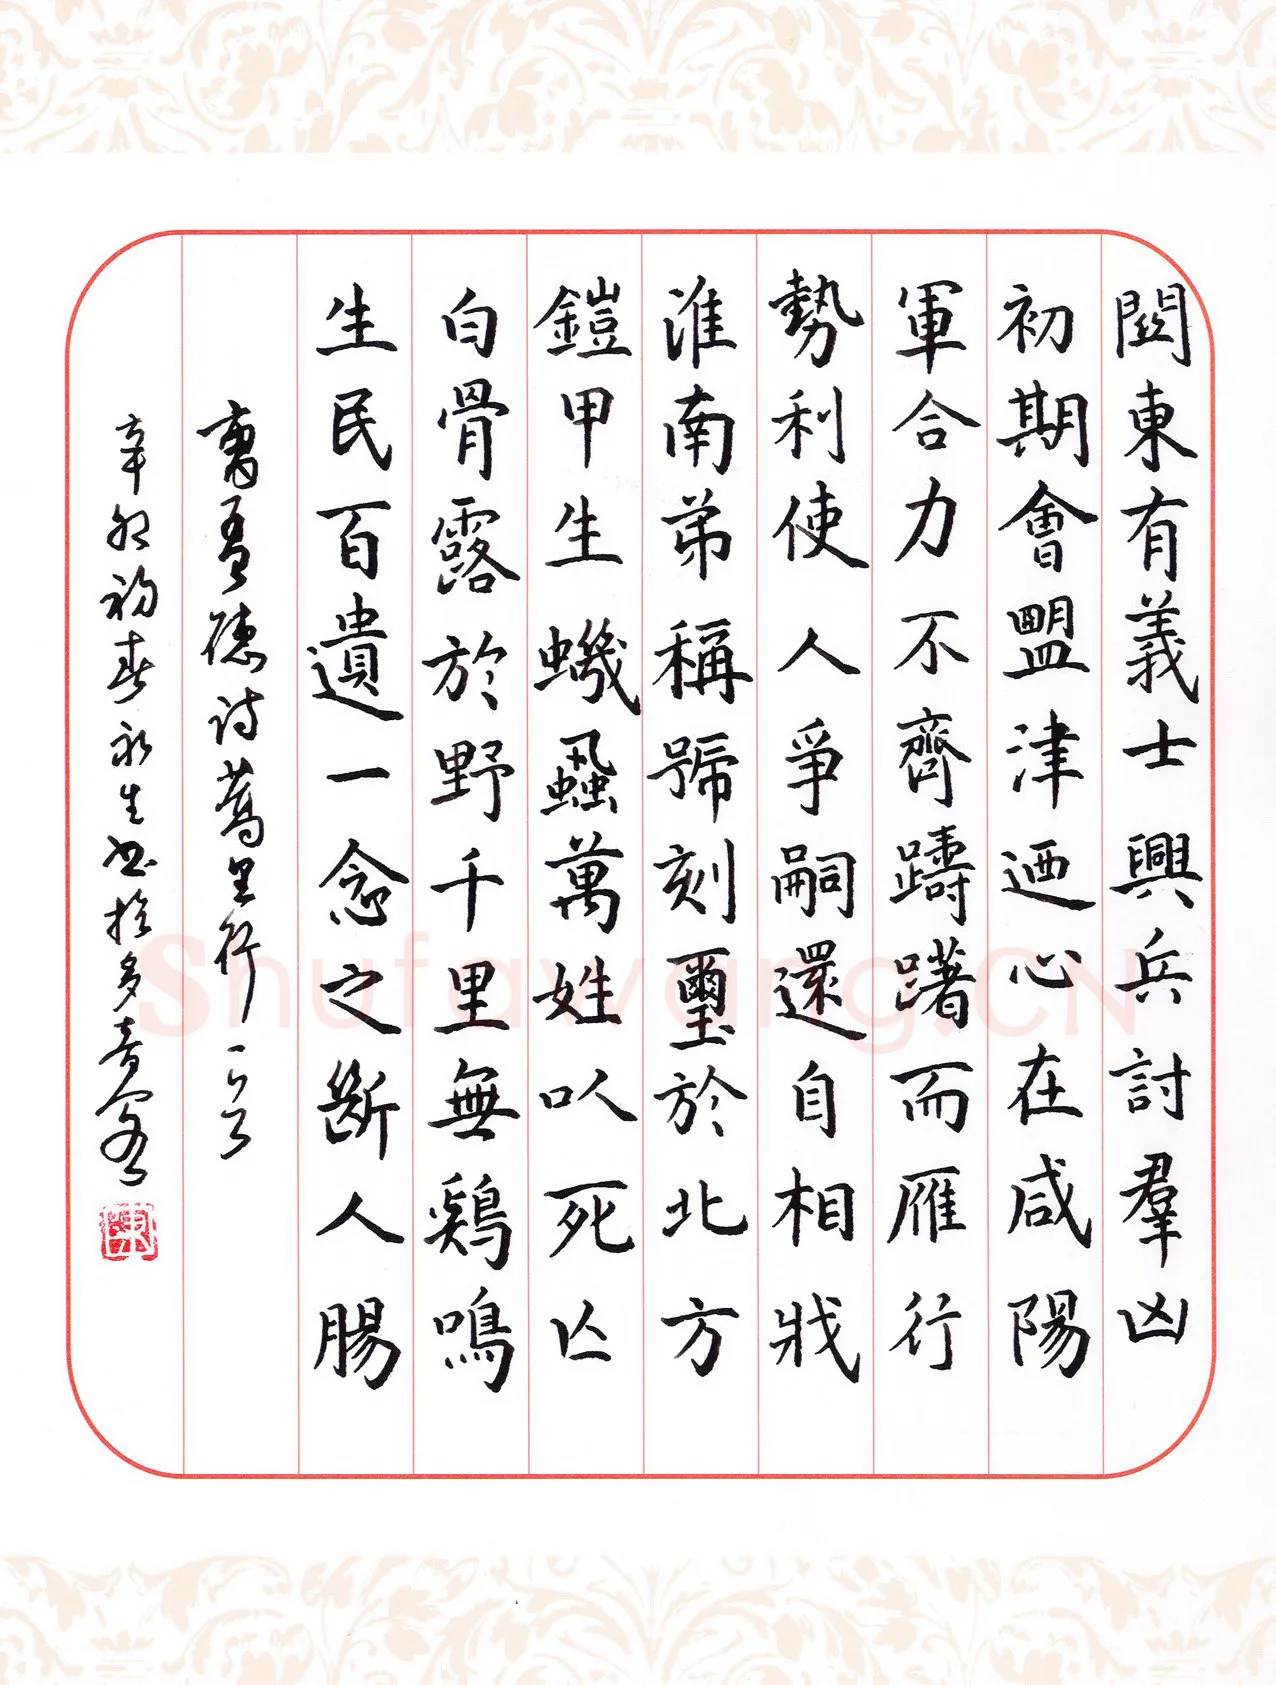 關東有義士興兵討羣凶
初期會盟津迺心在咸陽
軍合力不齊躊躇而雁行
勢利使人爭嗣還自相戕
淮南弟稱號刻璽於北方
鎧甲生蟣蝨萬姓以死亡
白骨露於野千里無鷄鳴
生民百遺一念之斷人腸
曹孟德詩蒿里行一首
辛卯初春永生書於多音齋
Shufawang.CN